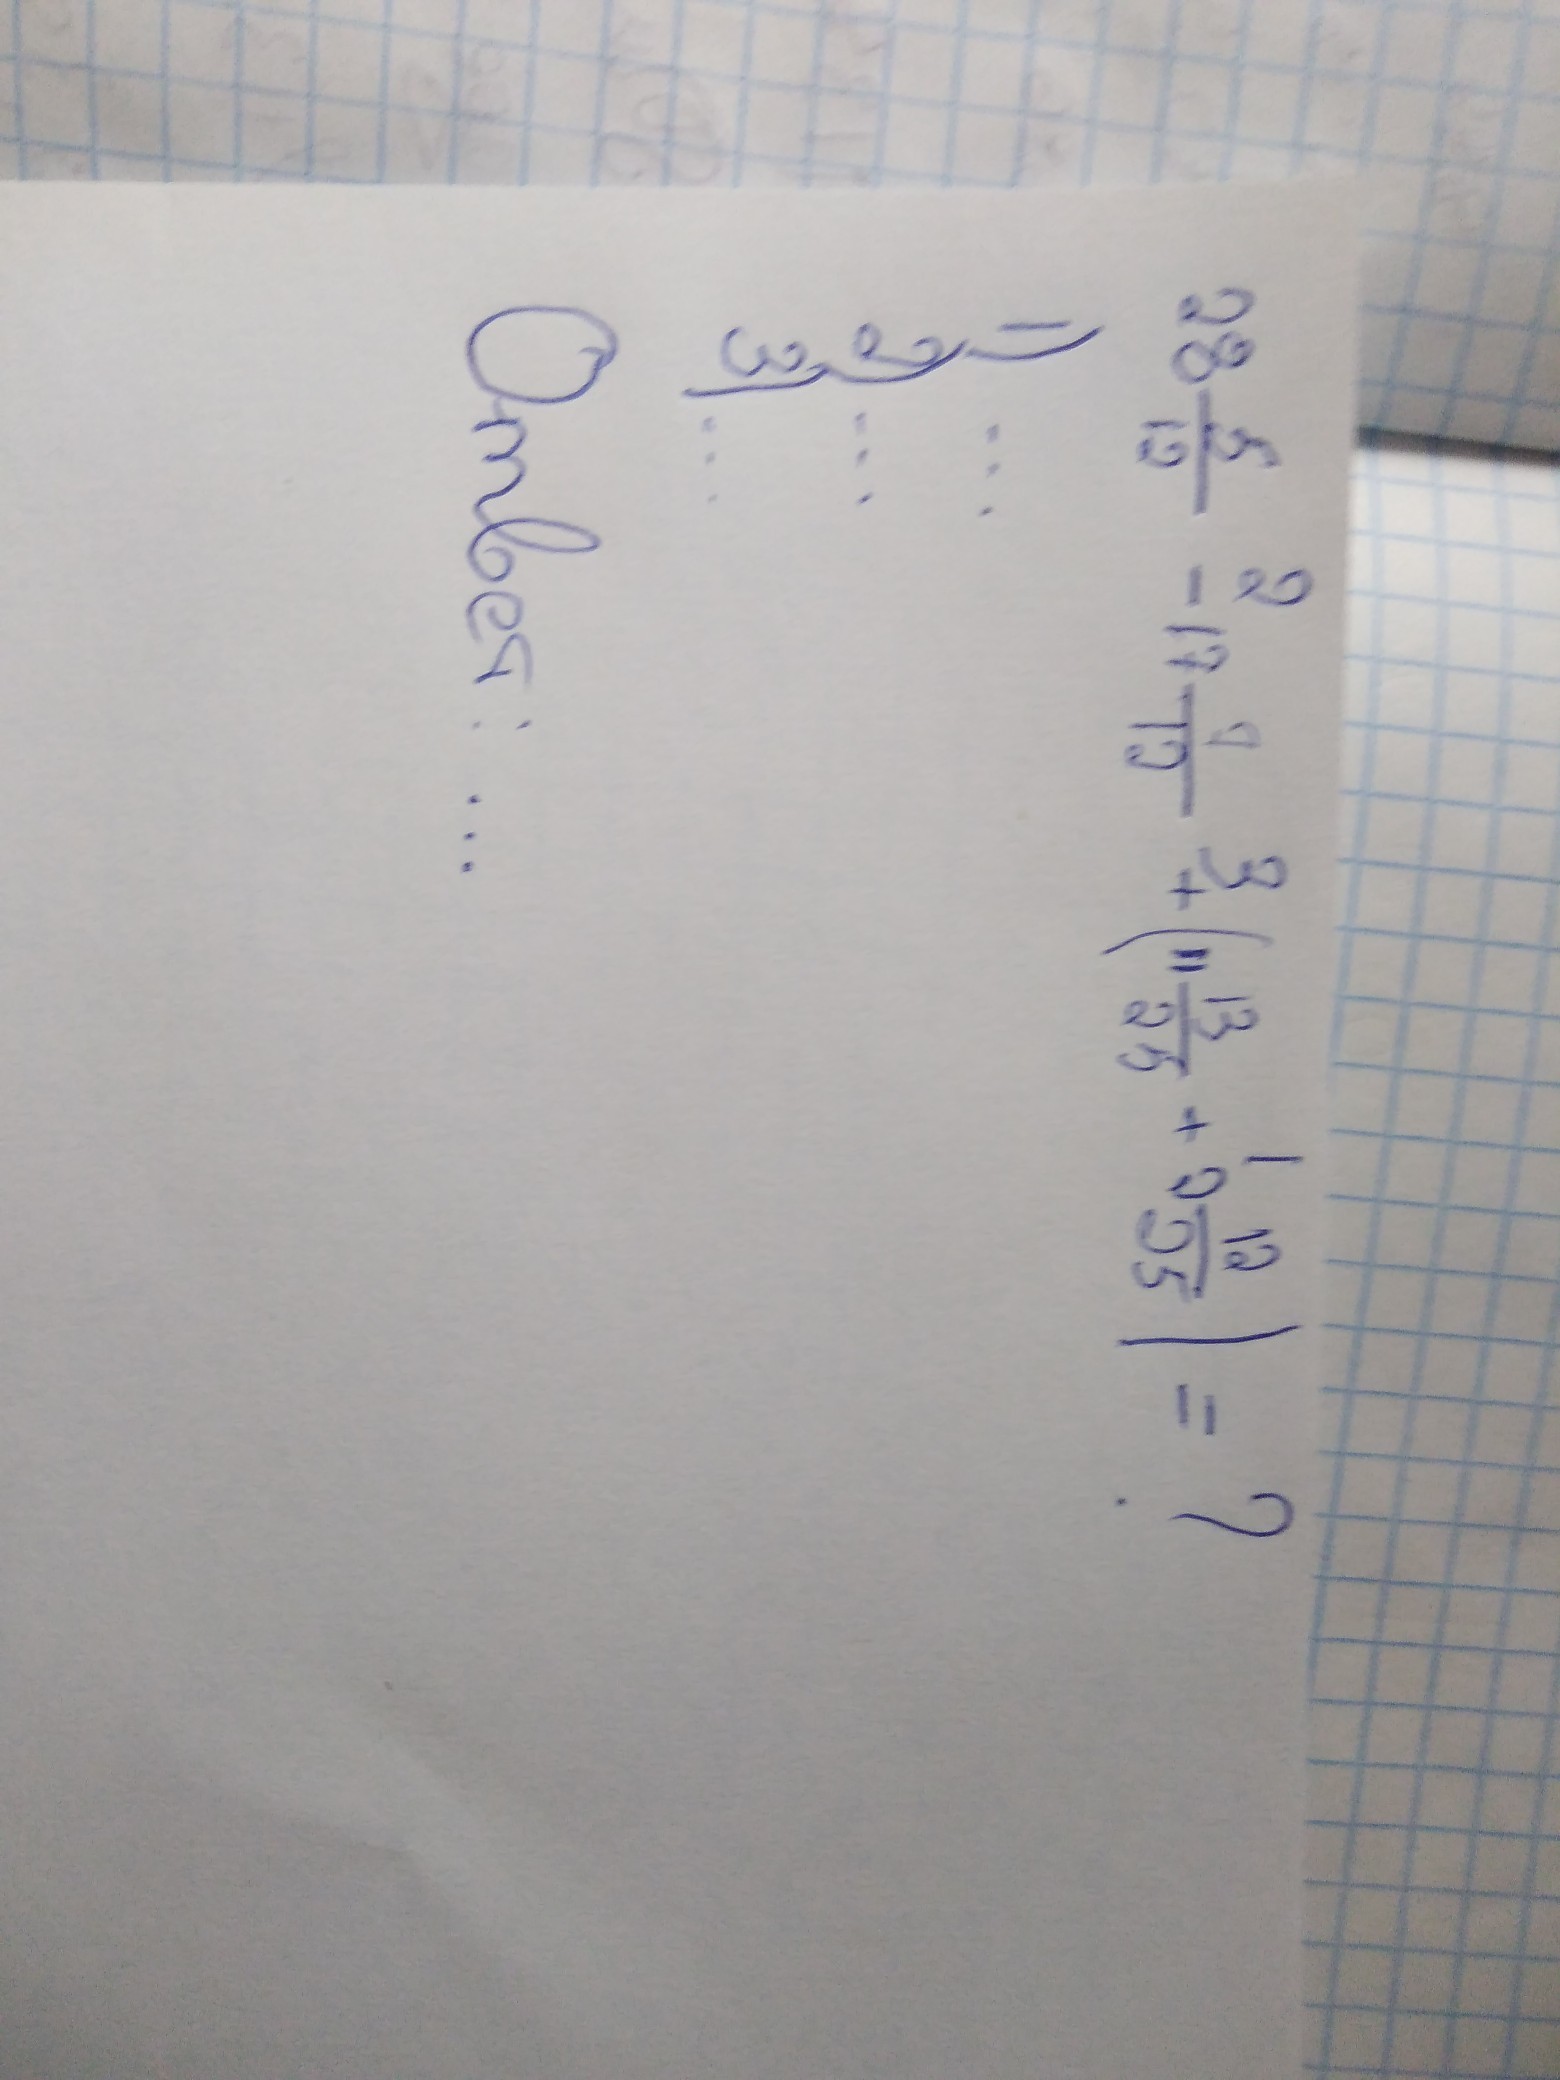 2 3 1
28 5/12 - 17 1/12 + (11 13/25 + 9 12/25) = ?
1) ...
2) ...
3) ...
Ответ: ...